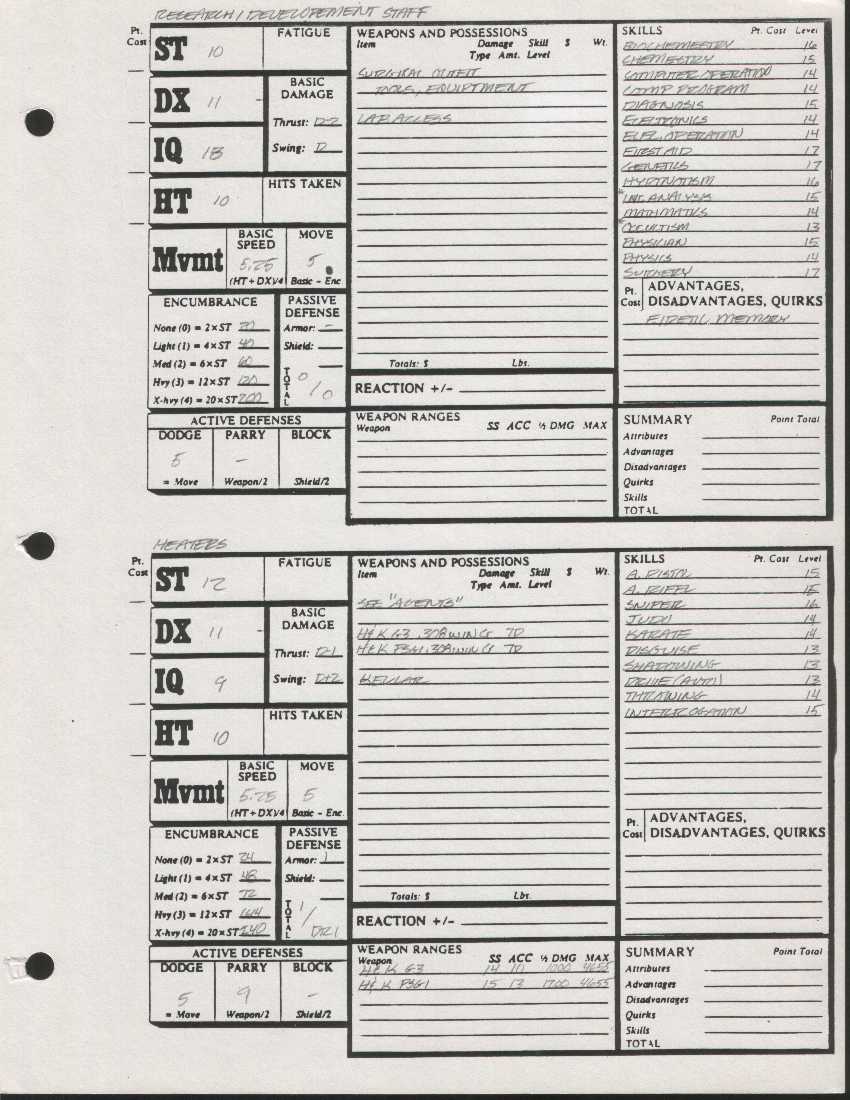 RESEARCH / DEVELOPEMENT STAFF
Pt. Cost
ST 10
FATIGUE
DX 11 -
BASIC DAMAGE
Thrust: D-2
Swing: D
IQ 13
HT 10
HITS TAKEN
Mvmt
BASIC SPEED 5.25 (HT+DX)/4
MOVE 5 Basic - Enc
ENCUMBRANCE
None (0) = 2×ST 20
Light (1) = 4×ST 40
Med (2) = 6×ST 60
Hvy (3) = 12×ST 120
X-hvy (4) = 20×ST 200
PASSIVE DEFENSE
Armor: -
Shield:
TOTAL 0/0
ACTIVE DEFENSES
DODGE PARRY BLOCK
5 -
= Move Weapon/2 Shield/2
WEAPONS AND POSSESSIONS
Item Damage Skill $ Wt.
Type Amt. Level
SURGICAL OUTFIT
TOOLS, EQUIPTMENT
LAB ACCESS
Totals: $ Lbs.
REACTION +/-
WEAPON RANGES
Weapon SS ACC ½ DMG MAX
SKILLS Pt. Cost Level
BIOCHEMESTRY 16
CHEMESTRY 15
COMPUTER OPERATION 14
COMP PROGRAM 14
DIAGNOSIS 15
ELECTRONICS 14
ELEC. OPERATION 14
FIRST AID 17
GENETICS 17
HYPTNOTISM 16
ANALYSIS 15
MATHMATICS 14
* OCCULTISM 13
PHYSICIAN 15
PHYSICS 14
SURGERY 17
Pt. Cost
ADVANTAGES,
DISADVANTAGES, QUIRKS
EIDETIC MEMORY
SUMMARY Point Total
Attributes
Advantages
Disadvantages
Quirks
Skills
TOTAL
HEATERS
Pt. Cost
ST 12
FATIGUE
DX 11 -
BASIC DAMAGE
Thrust: D-1
Swing: D+2
IQ 9
HT 10
HITS TAKEN
Mvmt
BASIC SPEED 5.25 (HT+DX)/4
MOVE 5 Basic - Enc.
ENCUMBRANCE
None (0) = 2×ST 24
Light (1) = 4×ST 48
Med (2) = 6×ST 72
Hvy (3) = 12×ST 144
X-hvy (4) = 20×ST 240
PASSIVE DEFENSE
Armor: 1
Shield:
TOTAL 1/ DR1
ACTIVE DEFENSES
DODGE PARRY BLOCK
5 9 -
= Move Weapon/2 Shield/2
WEAPONS AND POSSESSIONS
Item Damage Skill $ Wt.
Type Amt. Level
SEE "AGENTS"
H&K G3 .308 WIN G 7D
H&K PSG1 .308 WIN G 7D
KEVLAR
Totals: $ Lbs.
REACTION +/-
WEAPON RANGES
Weapon SS ACC ½ DMG MAX
H&K G3 14 10 1000 4655
H&K PSG1 15 13 1700 4655
SKILLS Pt. Cost Level
A. PISTL 15
A. RIFFL 15
SNIPER 16
JUDO 14
KARATE 14
DISGUISE 13
SHADOWING 13
DRIVE (AUTO) 13
THROWING 14
INTERROGATION 15
Pt. Cost
ADVANTAGES,
DISADVANTAGES, QUIRKS
SUMMARY Point Total
Attributes
Advantages
Disadvantages
Quirks
Skills
TOTAL